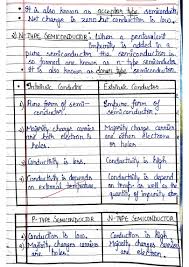 It is also known as acceptor type semiconductor.
Net charge is zero but conduction is low.
N-TYPE SEMICONDUCTOR: When a pentavalent
impurity is added in a
pure semiconductor the semiconductor is
so formed are known as n-type semiconductor.
It is also known as donor type semiconductor.
Intrinsic Conductor Extrinsic Conductor
Pure form of semi- Impure form of
conductor. semiconductor.
Majority charge carrier Majority charge carrier
are both electron & are either electrons
holes. or holes
Conductivity is low. Conductivity is high
Conductivity is depends Conductivity is depend
on external temperature. on temp as well as the
quantity of impurity
P-TYPE SEMICONDUCTOR N-TYPE SEMICONDUCTOR
Conduction is low. Conduction is High
Majority charges carriers Majority charges carriers
are holes. are electron.